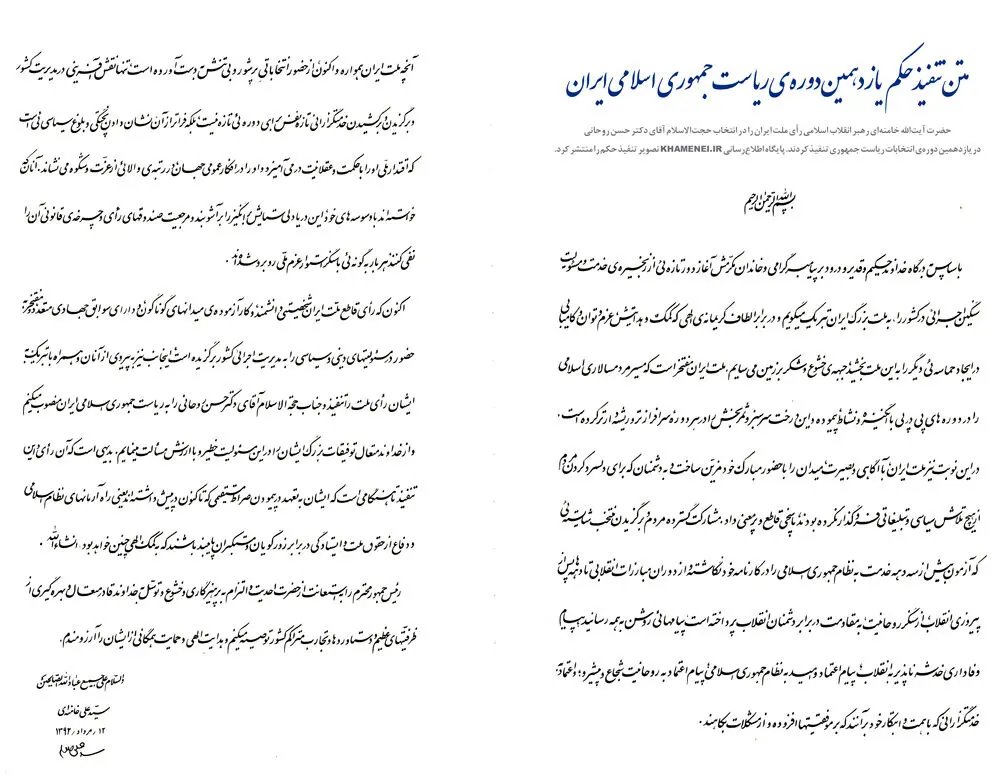 متن تنفیذ حکم یازدهمین دوره‌ی ریاست جمهوری اسلامی ایران
حضرت آیت‌الله خامنه‌ای رهبر انقلاب اسلامی رأی ملت ایران را در انتخاب حجت‌الاسلام آقای دکتر حسن روحانی
در یازدهمین دوره‌ی انتخابات ریاست جمهوری تنفیذ کردند. پایگاه اطلاع‌رسانی KHAMENEI.IR تصویر تنفیذ حکم را منتشر کرد.
بسم‌الله الرحمن الرحیم
با سپاس به درگاه خداوند حکیم و قدیر و درود بر پیامبر گرامی و خاندان مکرمش آغاز دور تازه‌ئی از زنجیره‌ی خدمت و مسئولیت
سنگین اجرائی در کشور را، به ملت بزرگ ایران تبریک میگویم و در برابر الطاف کریمانه‌ی الهی که کمک و هدایتش عزم و توان و کامیابی
در ایجاد حماسه‌ئی دیگر را به این ملت بخشید جبهه‌ی خشوع و شکر بر زمین می‌سایم. ملت ایران مفتخر است که مسیر مردم سالاری اسلامی
را در دوره‌های پی در پی با انگیزه و نشاط پیموده و این درخت سرسبز و ثمربخش را در هر دوره سرافرازتر و ریشه‌دارتر کرده است.
در این نوبت نیز ملت ایران با آگاهی و بصیرت میدان را با حضور مبارک خود مزیّن ساخت و به دشمنان که برای دلسرد کردن مردم
از هیچ تلاش سیاسی و تبلیغاتی فروگذار نکرده بودند پاسخی قاطع و پرمعنی داد. مشارکت گسترده مردم و برگزیدن منتخب شایسته‌ئی
که آزمون بیش از سه دهه خدمت به نظام جمهوری اسلامی را در کارنامه خود نگاشته و از دوران مبارزات انقلابی تا دهه‌ها پس از
پیروزی انقلاب از سنگر روحانیت به مقاومت در برابر دشمنان انقلاب پرداخته است پیامهائی روشن به همه رسانید: پیام
وفاداری خدشه ناپذیر به انقلاب؛ پیام اعتماد و امید به نظام جمهوری اسلامی؛ پیام اعتماد به روحانیت شجاع و پیشرو؛ و اعتماد به
خدمتگزارانی که با همت و ابتکار خود برآنند که بر موفقیتها افزوده و از مشکلات بکاهند.
آنچه ملت ایران همواره و اکنون از حضور انتخاباتی پرشور و بی‌تنش بدست آورده است تنها نقش آفرینی در مدیریت کشور
و برگزیدن و برکشیدن خدمتگزارانی تازه نفس برای دوره‌ئی تازه نیست؛ بلکه فراتر از آن نشان دادن پختگی و بلوغ سیاسی‌ئی است
که اقتدار ملی او را با حکمت و عقلانیت در می‌آمیزد و او را در افکار عمومی جهان در رتبه‌ی والائی از عزت و شکوه می‌نشاند. آنان که
خواسته‌اند با وسوسه‌های خود این دریادلی ستایش‌انگیز را برآشوبند و مرجعیت صندوقهای رأی و چرخه‌ی قانونی آن را
نفی کنند هر بار به گونه‌ئی با سنگر استوار عزم ملّی روبرو شده‌اند.
اکنون که رأی قاطع ملت ایران شخصیتی دانشمند و کارآزموده‌ی میدانهای گوناگون و دارای سوابق جهادی متعدد و مفتخر به
حضور در مسئولیتهای دینی و سیاسی را به مدیریت اجرائی کشور برگزیده است اینجانب نیز به پیروی از آنان و همراه با تبریک به
ایشان رأی ملت را تنفیذ و جناب حجة الاسلام آقای دکتر حسن روحانی را به ریاست جمهوری اسلامی ایران منصوب میکنم
و از خداوند متعال توفیقات بزرگ ایشان را در این مسئولیت خطیر و با ارزش مسألت مینمایم. بدیهی است که آن رأی و این
تنفیذ تا هنگامی است که ایشان به تعهد در پیمودن صراط مستقیمی که تاکنون در پیش داشته‌اند یعنی راه آرمانهای نظام اسلامی
و دفاع از حقوق ملت و ایستادگی در برابر زورگویان و مستکبران پایبند باشند که به کمک الهی چنین خواهد بود، انشاءالله.
رئیس جمهور محترم را به استعانت از حضرت احدیت و التزام به پرهیزگاری و خشوع و توسل به خداوند قادر متعال و بهره‌گیری از
ظرفیتهای عظیم و دستاوردها و تجارب متراکم کشور توصیه میکنم و هدایت الهی و حمایت همگانی از ایشان را آرزومندم.
والسّلام علی جمیع عباد الله الصالحین
سیّد علی خامنه‌ای
۱۲ / مرداد / ۱۳۹۲